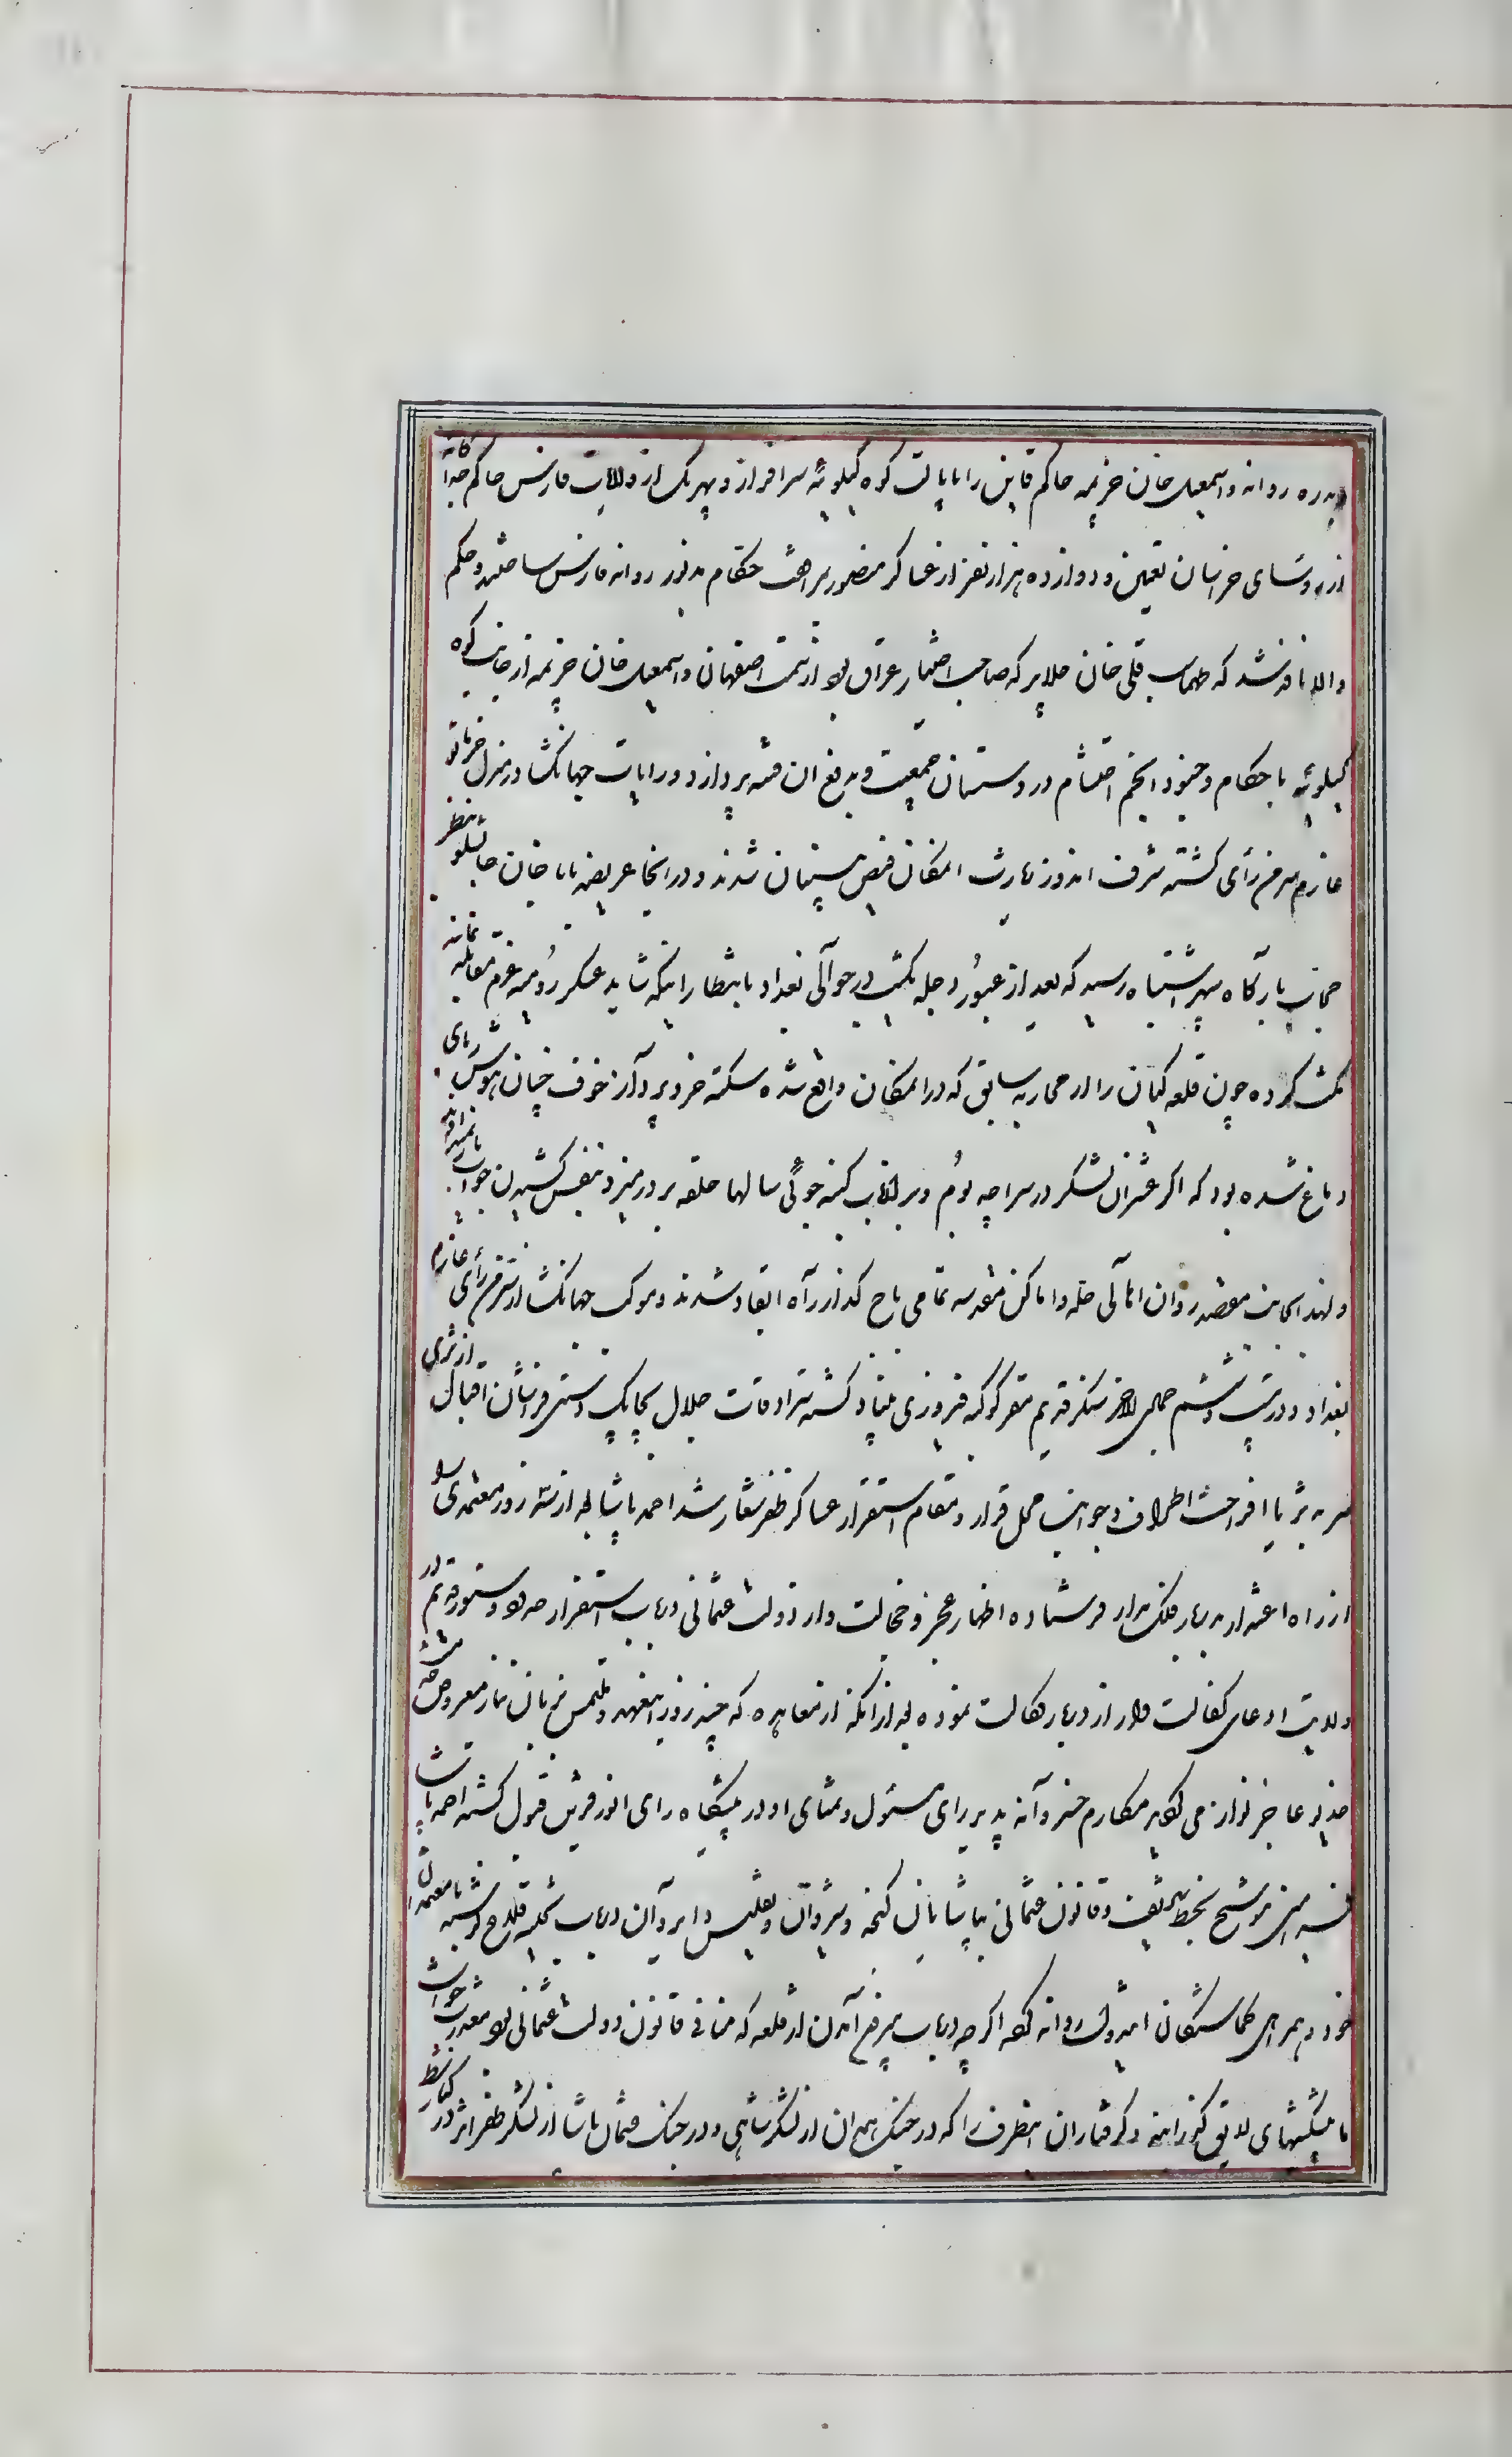 بدره روانه و اسمعیل خان خزیمه حاکم قاین را بایالت کوه کیلویه سرافراز و بهر یک از ولایات فارس حاکم جداگانه
از رؤسای خراسان تعیین و دوازده هزار نفر از عساکر منصور بمرافقت حکام مذکور روانه فارس ساختند و حکم
والا نافذ شد که طهماسب قلی خان جلایر که صاحب اختیار عراق بود از سمت اصفهان و اسمعیل خان خزیمه از جانب کوه
کیلویه با حکام و جنود انجم احتشام در دوستان جمعیت و بدفع آن فتنه پردازد و رایات جهانگشا در منزل خرماتو
عازم سرمن رأی کشته شرف اندوز زیارت امکان فیض بنیان شدند و در آنجا عریضه بابا خان چاپشلو بنظر
حجاب بارگاه سپهر اشتباه رسید که بعد از عبور دجله یکشب در حوالی بغداد بانتظار اینکه شاید عسکر رومیه عزم مقابله نمایند
مکث کرده چون قلعه کیان را در محاربه سابق که در آن مکان واقع شده سکته خرد پرداز خوف چنان هوش ربای
دماغ شده بود که اگر عنان لشکر در سراچه بوم و بر ایشان کینه جوئی سالها حلقه بر در میزد بنفس کشیدن جواب نمیدادند
و لهذا بجانب مقصد روان اهالی حله و اماکن مقدسه تمامی باج گذار راه انقیاد شدند و موکب جهانگشا از سرمن رأی عازم
بغداد و در بیست و ششم جمادی الاخر سنکر قدیم مقر کوکبه فیروزی بنیاد کشته سرادقات جلال بچابک دستی فراشان اقبال از ثری
سر به ثریا افراخت اطراف و جوانب محل قرار و مقام استقرار عساکر ظفر شعار شد احمد پاشا بعد از سه روز معتمدی
از راه اعتذار بدربار فلک مدار فرستاده اظهار عجز و خجالت و از دولت عثمانی در باب استقرار حدود و سنور قدیم در
ولایت ادعای کفالت و از دربار وکالت نموده بعد از آنکه از معاهده که چند روز متعهد و ملتمس بزبان نیاز معروض
خدیو عاجز نواز می گردید مکارم خسروانه پذیرای مسئول و تمنای او در پیشگاه رای انور قرین قبول کشته احمد پاشا
فرامین موشح بخط شریف و قانون عثمانی بپاشایان گنجه و شیروان و تفلیس و ایروان در باب تخلیه قلاع نوشته با معتمدان
خود و همراهی گماشتگان این دولت روانه کرد اگر چه در باب بیرون آمدن از قلعه که منافی قانون دولت عثمانی بود معذرت خواست
با پیشکشهای لایق گذرانیده و گرفتاران اینطرف را که در جنگ همدان از لشکر شاهی و در جنگ عثمان پاشا از لشکر ظفر اثر در کنار شط